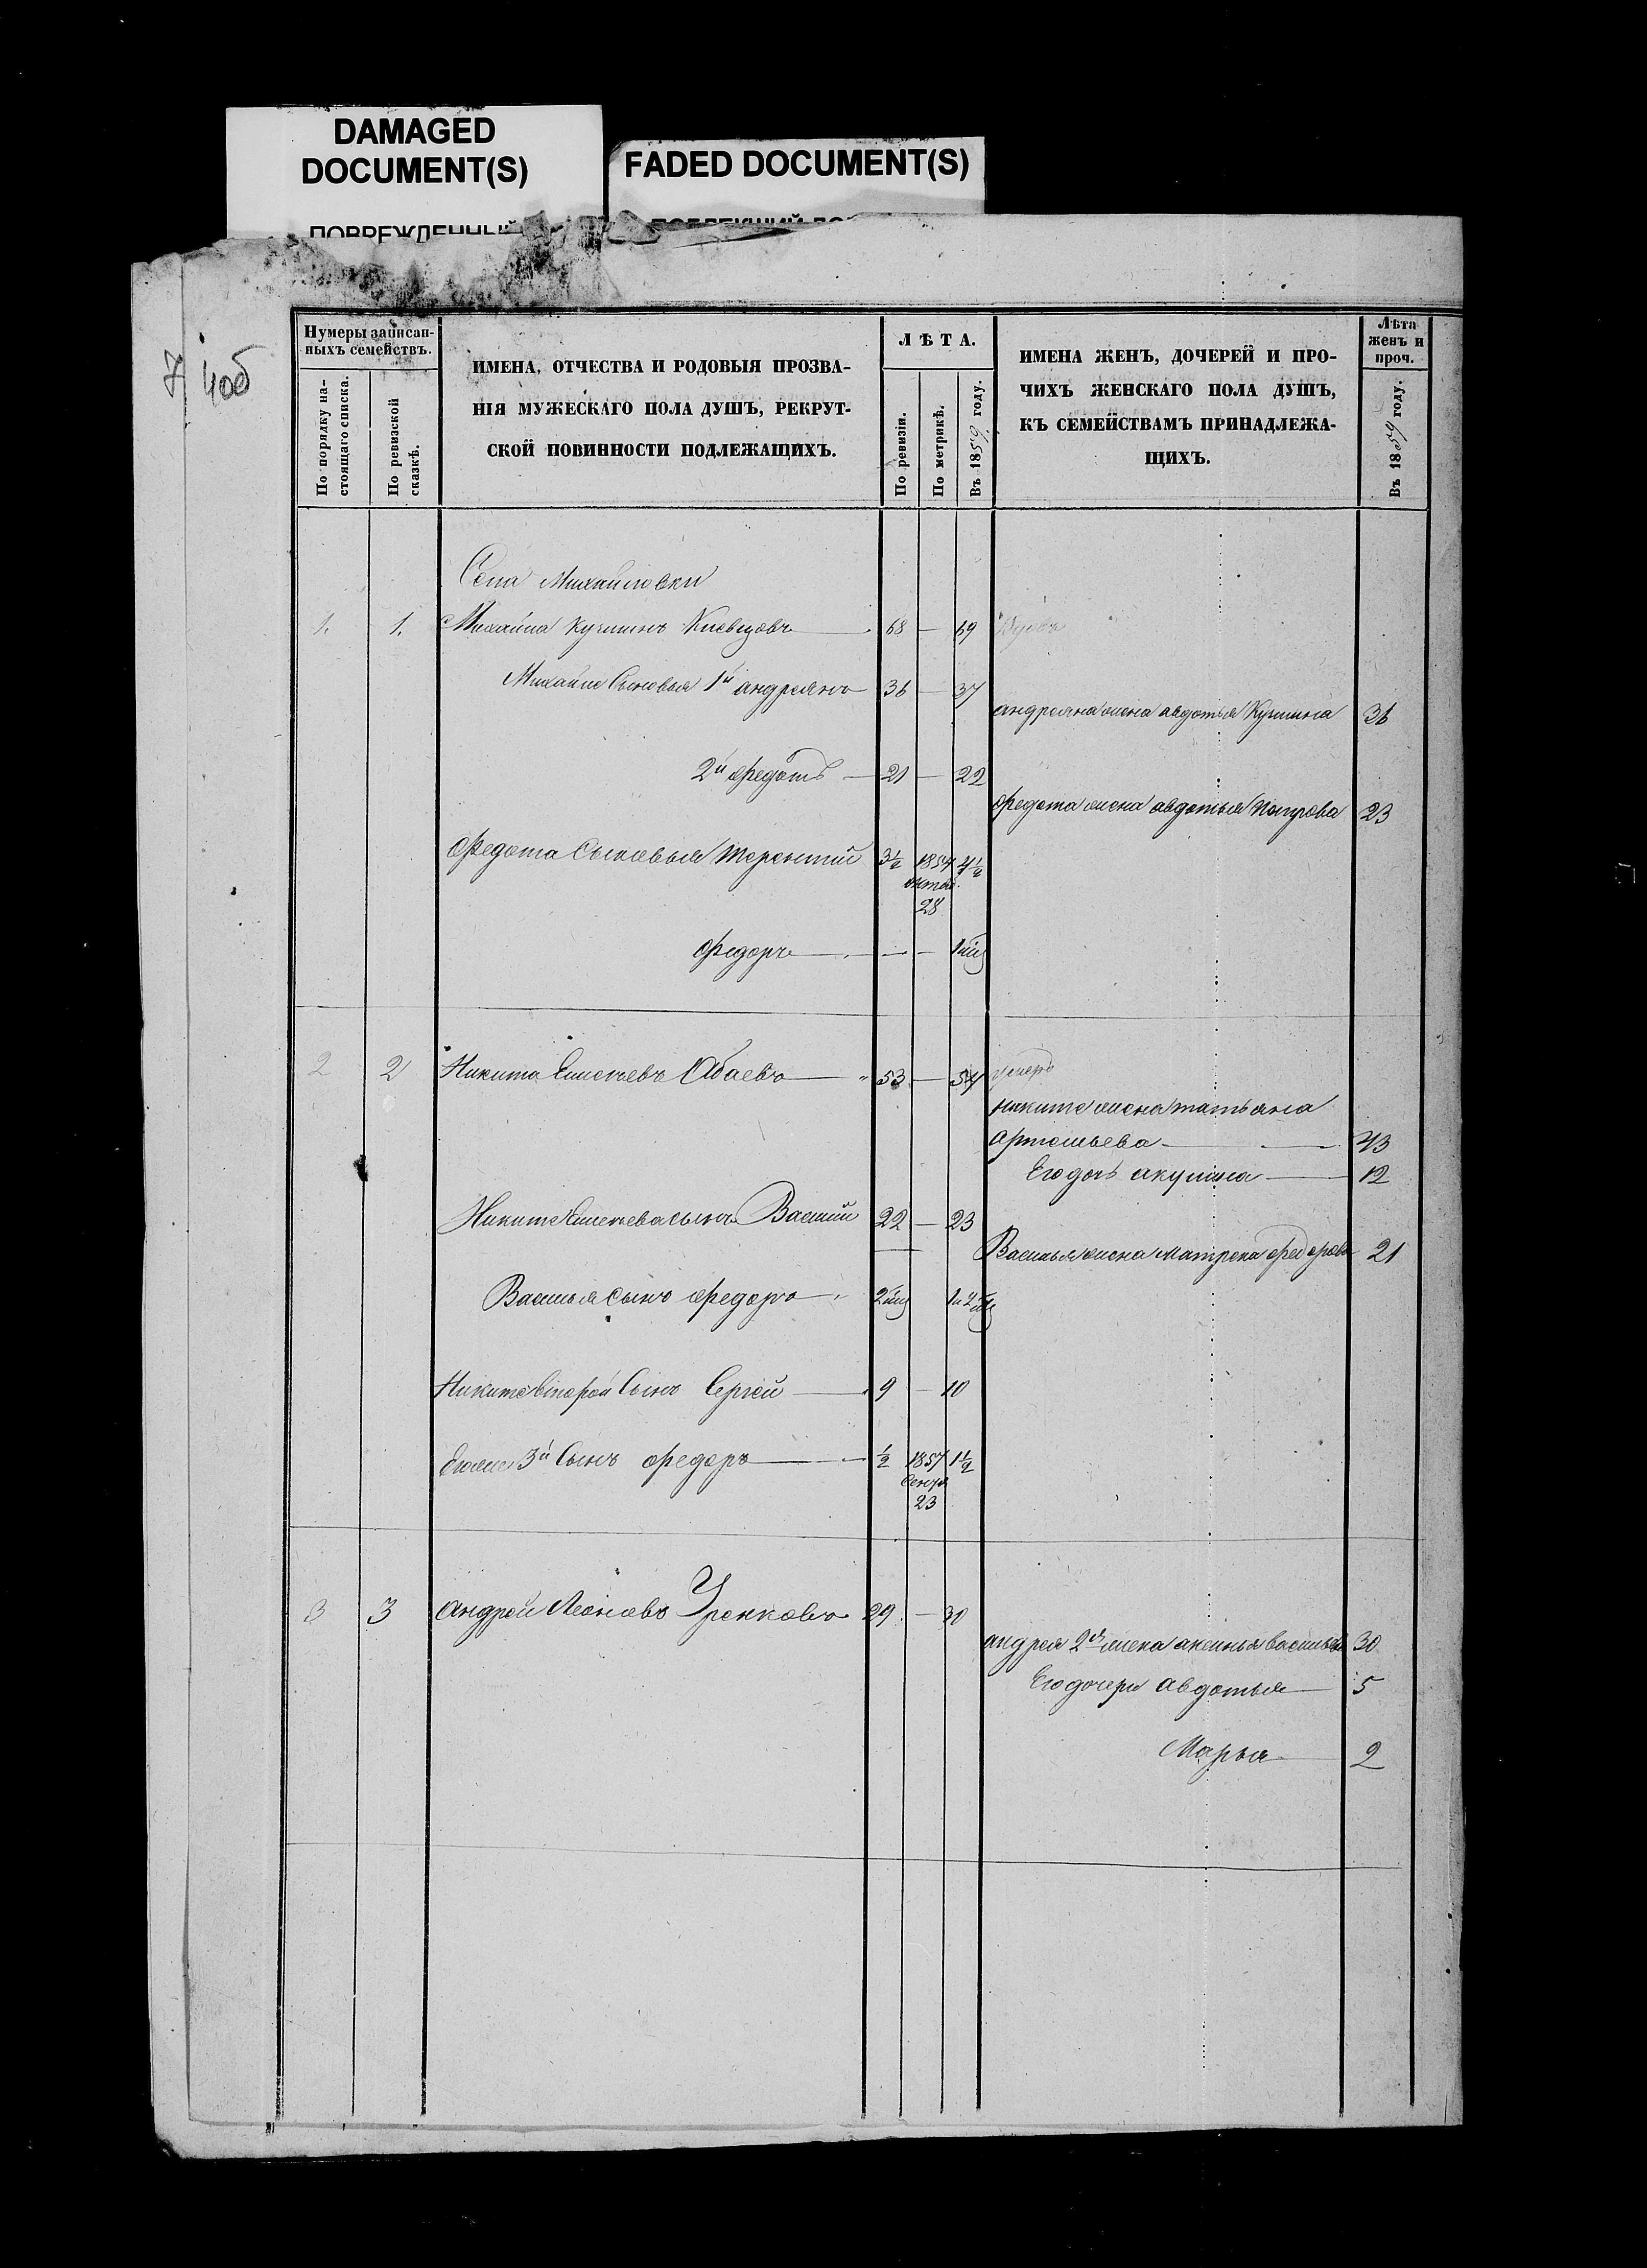 DAMAGED
DOCUMENT(S)
FADED DOCUMENT(S)
ПОВРЕЖДЕННЫЙ
Нумеры записан-
ныхъ семействъ.
По порядку на-
стоящаго списка.
По ревизской
сказкѣ.
ИМЕНА, ОТЧЕСТВА И РОДОВЫЯ ПРОЗВА-
НІЯ МУЖЕСКАГО ПОЛА ДУШЪ, РЕКРУТ-
СКОЙ ПОВИННОСТИ ПОДЛЕЖАЩИХЪ.
ЛѢТА.
По ревизіи.
По метрикѣ.
Въ 1859 году.
ИМЕНА ЖЕНЪ, ДОЧЕРЕЙ И ПРО-
ЧИХЪ ЖЕНСКАГО ПОЛА ДУШЪ,
КЪ СЕМЕЙСТВАМЪ ПРИНАДЛЕЖА-
ЩИХЪ.
Лѣта
женъ и
проч.
Въ 1859 году.
Села Михайловки
1. 1. Михайла Кузминъ 68 — 69
Михайле Сыновья 1й андреянъ 36 — 37
андреяна жена авдотья Кузмина 36
2й федотъ — 21 — 22
федота жена авдотья 23
федота Сыновья Терентий 3½ 1854 4½
октяб.
28
федоръ — —
2 2 Никита Абаевъ — 53 — 54 умеръ
никите жена татьяна
артемьева — 43
Его дочь акулина — 12
Никите сынъ Василий 22 — 23
Василья жена Матрена федорова 21
Василья сынъ федоръ
Никите второй Сынъ Сергей — 9 — 10
3й Сынъ федоръ — ½ 1857 1½
Сентя
23
3 3 андрей Леоновъ 29 — 30
андрея 2я жена аксинья васильева 30
Его дочери авдотья — 5
Марья — 2